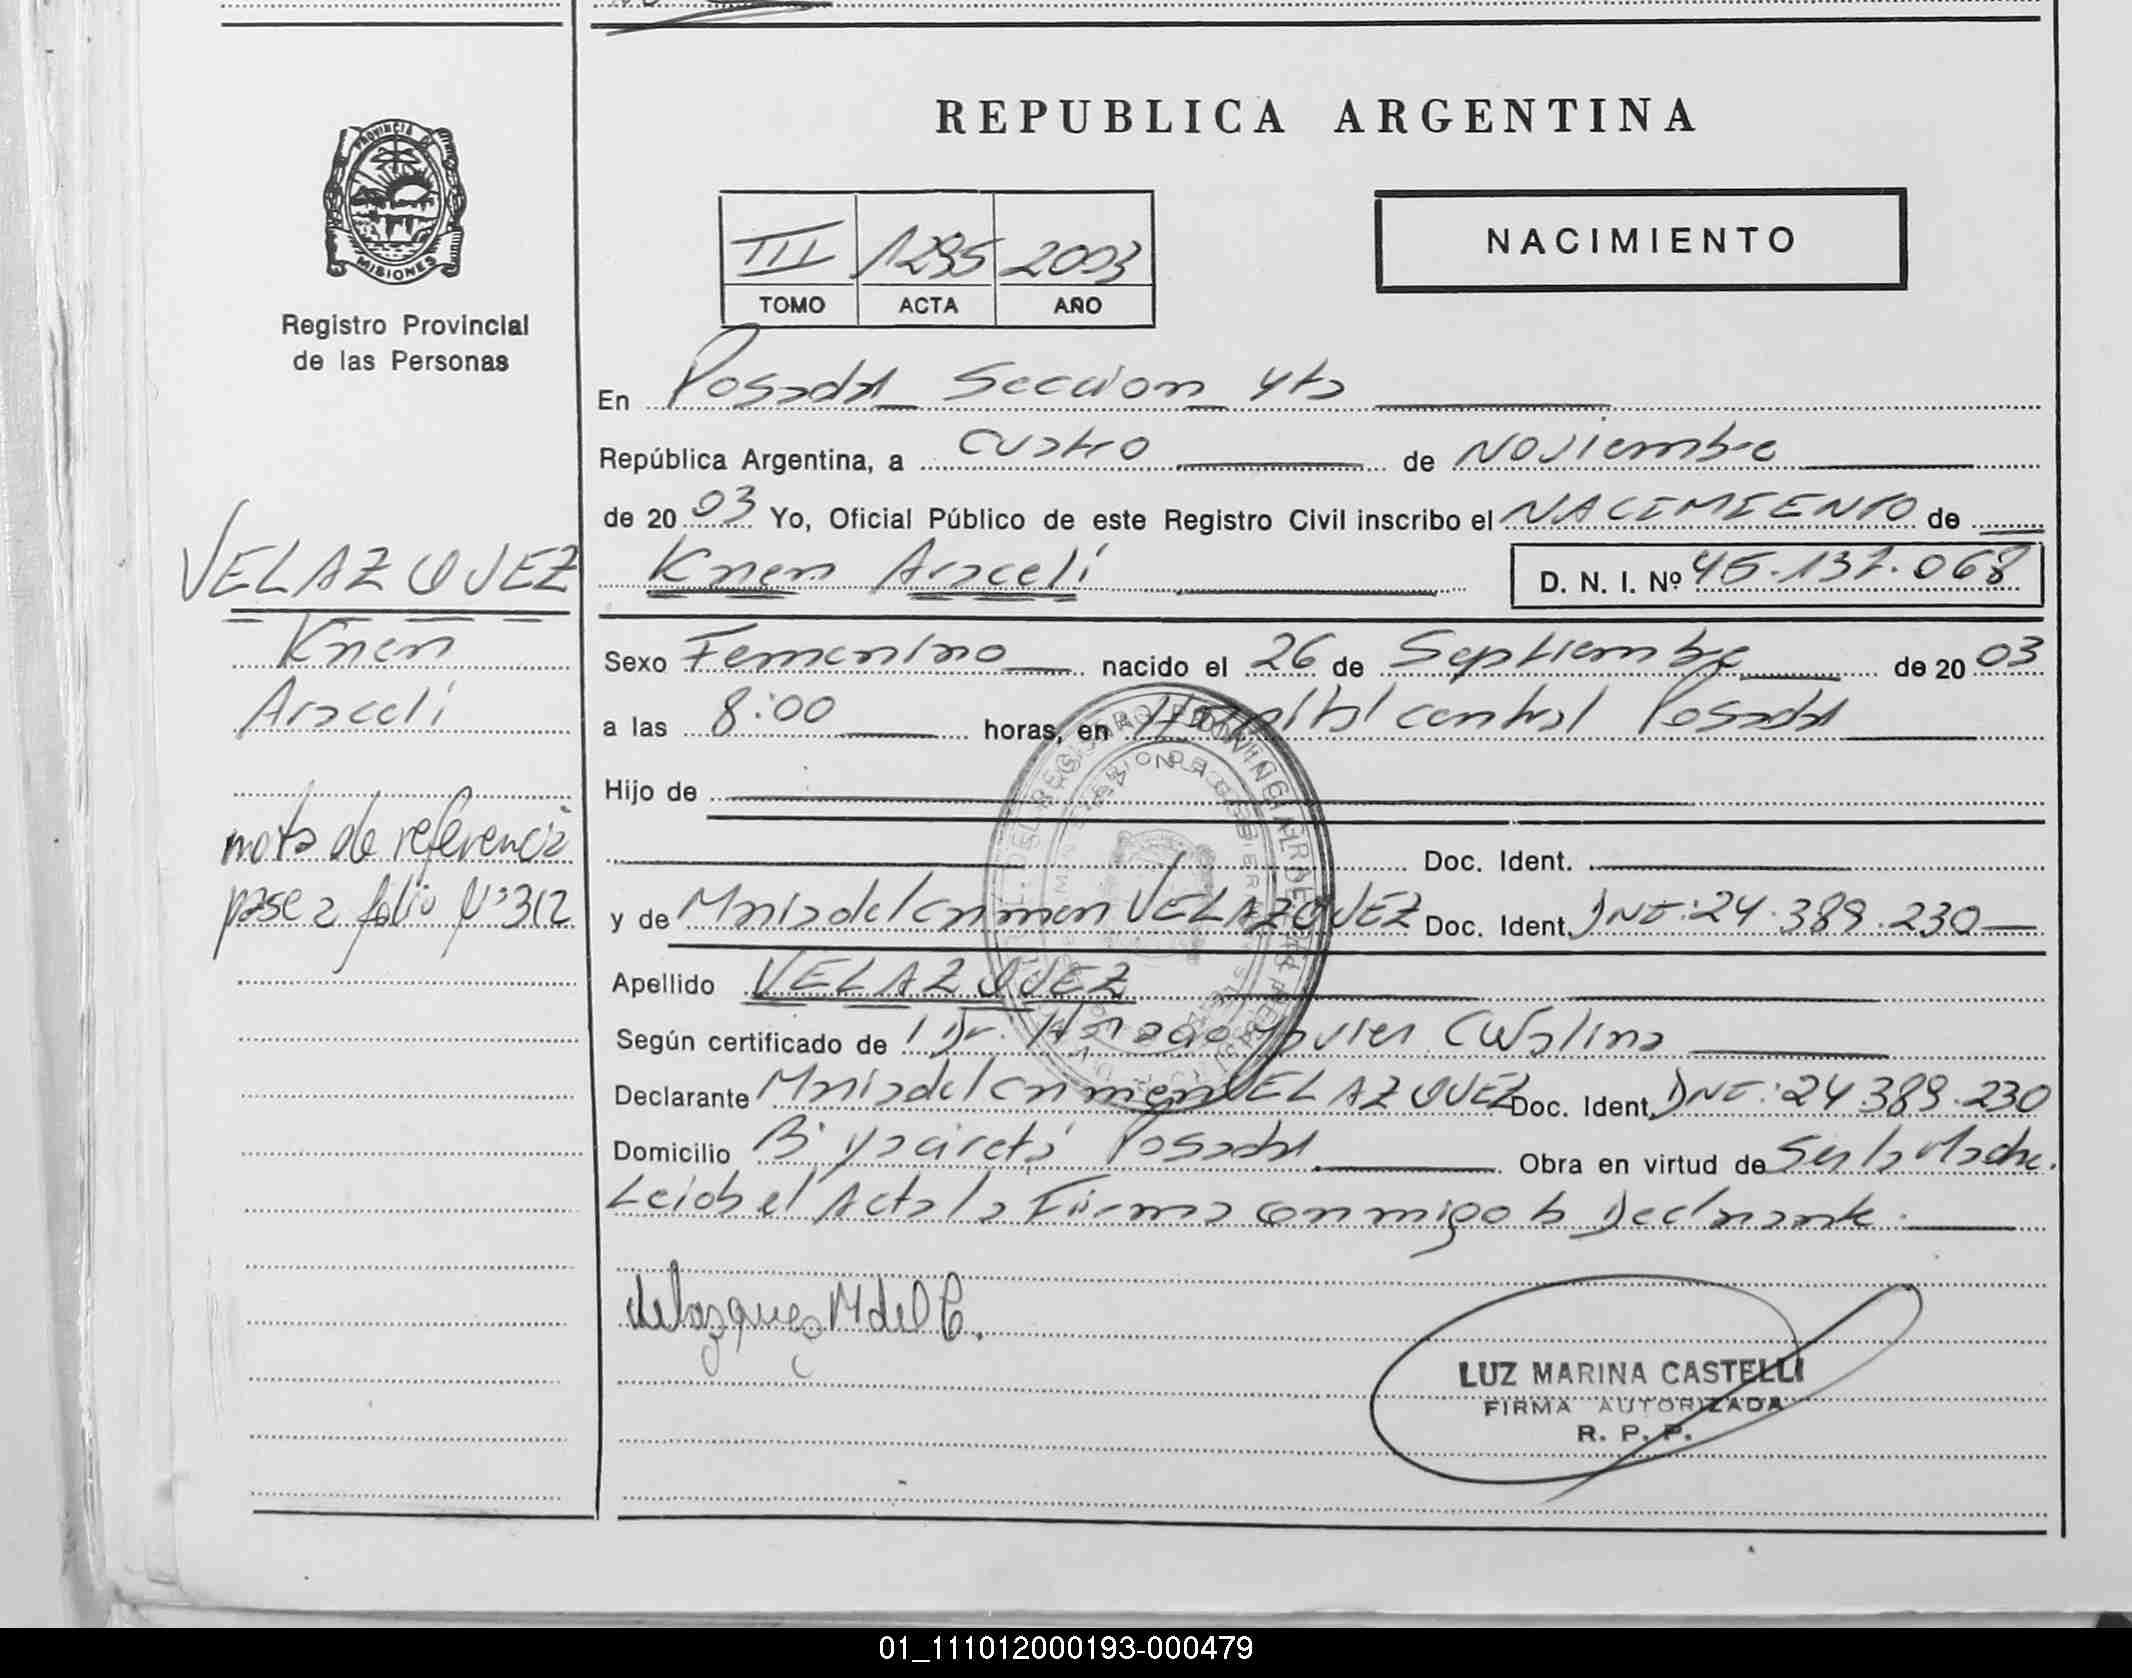 REPUBLICA ARGENTINA
PROVINCIA DE
MISIONES
Registro Provincial
de las Personas
III 1295 2003
TOMO ACTA AÑO
NACIMIENTO
En Posadas Seccion 4ta
República Argentina, a cuatro de Noviembre
de 2003 Yo, Oficial Público de este Registro Civil inscribo el NACIMIENTO de
Karen Araceli D. N. I. Nº 45.137.068
VELAZQUEZ
Karen
Araceli
nota de referencia
pase a folio Nº 312
Sexo Femenino nacido el 26 de Septiembre de 2003
a las 8:00 horas, en Hospital central Posadas
Hijo de
Doc. Ident.
y de Maria del Carmen VELAZQUEZ Doc. Ident. DNI: 24.389.230
Apellido VELAZQUEZ
Según certificado de Dr. Javier
Declarante Maria del Carmen VELAZQUEZ Doc. Ident. DNI: 24 389.230
Domicilio Bº Yacireta Posadas Obra en virtud de Ser la Madre.
Leida el Acta la Firma conmigo la Declarante.
Velazquez M del C.
LUZ MARINA CASTELLI
FIRMA AUTORIZADA
R. P. P.
01_111012000193-000479